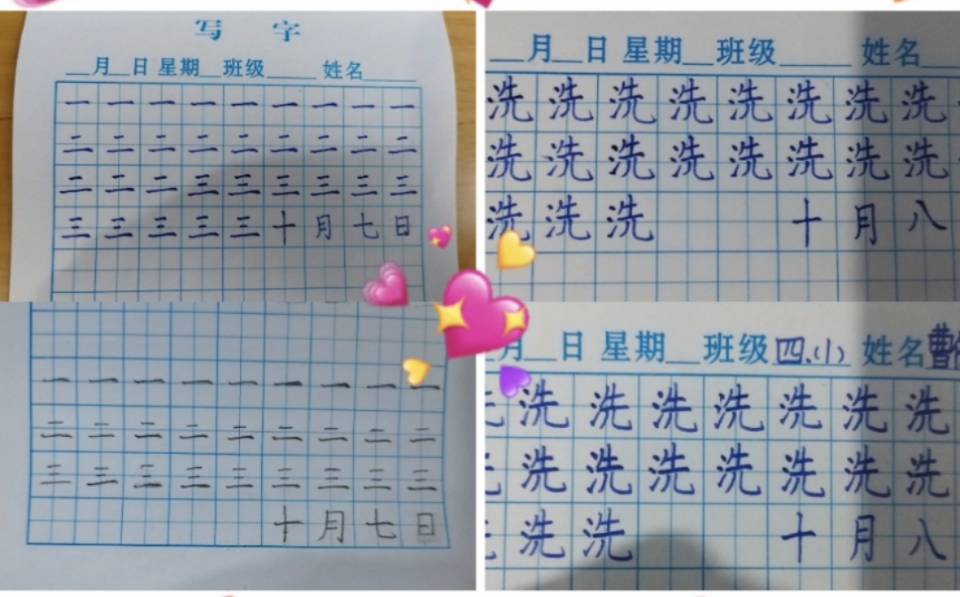 写 字
__月__日 星期__班级____ 姓名____
一 一 一 一 一 一 一 一 一
二 二 二 二 二 二 二 二 二
二 二 二 三 三 三 三 三 三
三 三 三 三 三 十 月 七 日
__月__日 星期__班级____ 姓名__
洗 洗 洗 洗 洗 洗 洗 洗
洗 洗 洗 洗 洗 洗 洗 洗
洗 洗 洗 十 月 八
一 一 一 一 一 一 一 一 一
二 二 二 二 二 二 二 二 二
三 三 三 三 三 三 三 三 三
十 月 七 日
月__日 星期__班级四.(1) 姓名曹
洗 洗 洗 洗 洗 洗 洗
洗 洗 洗 洗 洗 洗 洗
洗 洗 十 月 八